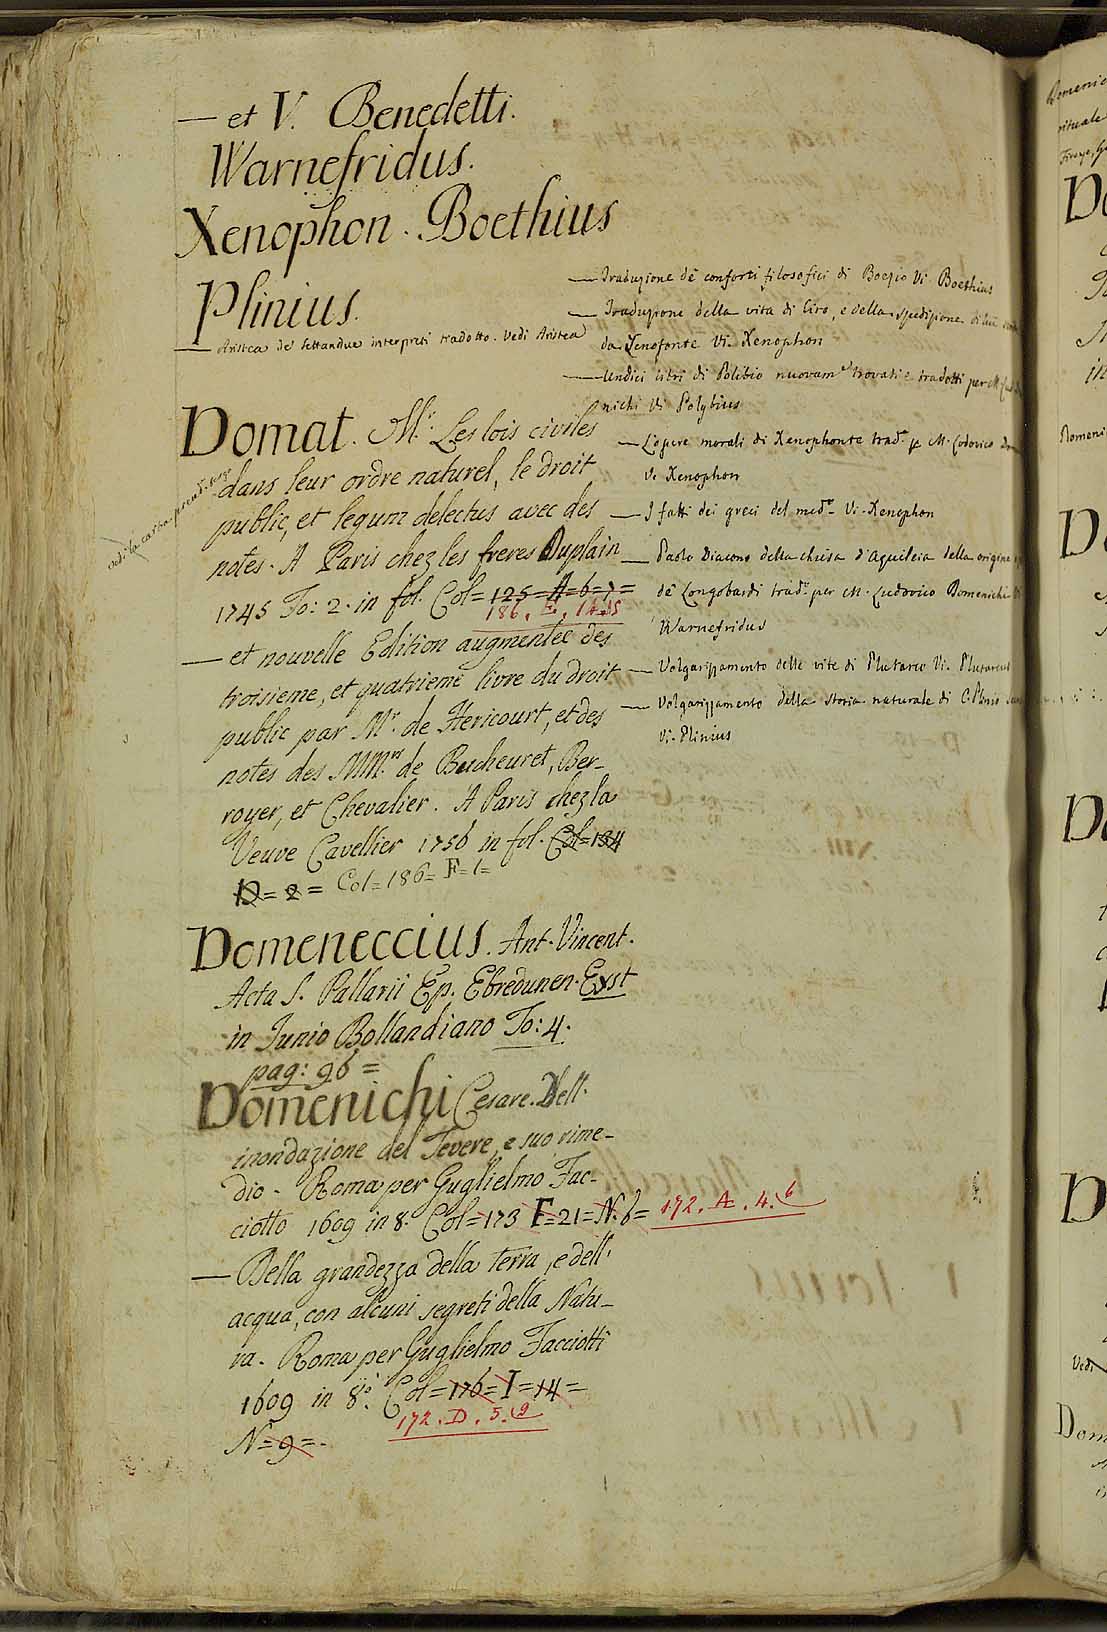 — et V. Benedetti.
Warnefridus.
Xenophon. Boethius
Plinius.
— Aristea de' settandue interpreti tradotto. Vedi Aristea
Domat. Mr. Les lois civiles
dans leur ordre naturel, le droit
public, et legum delectus avec des
notes. A Paris chez les freres Duplain
1745 To: 2. in fol. Col=125=A=6=7=
186. E. 14.15
— et nouvelle Edition augmentée des
troisieme, et quatrieme livre du droit
public par Mr. de Hericourt, et des
notes des MM.rs de Bucheuret, Ber-
royer, et Chevalier. A Paris chez la
Veuve Cavellier 1756 in fol. Col=134
D=2= Col=186=F=1=
Domeneccius. Ant. Vincent.
Acta S. Pallarii Ep. Ebredunen. Exst
in Junio Bollandiano To: 4.
pag: 96=
Domenichi Cesare. Dell'
inondazione del Tevere, e suo rime-
dio. Roma per Guglielmo Fac-
ciotto 1609 in 8. Col=173 F=21=N.6= 172. A. 4. 6
— Della grandezza della terra, e dell'
acqua, con alcuni segreti della Natu-
ra. Roma per Guglielmo Facciotti
1609 in 8.o Col=176=I=14=
172. D. 5. 9
N=9=.
vedi la carta
— Traduzione de' conforti filosofici di Boezio Vi. Boethius
— Traduzione della vita di Ciro, e della spedizione di
da Xenofonte Vi. Xenophon
— Undici libri di Polibio nuovam.e trovati e tradotti per M.
nichi Vi Polybius
— L'opere morali di Xenophonte trad.e p M. Lodovico
Vi Xenophon
— I fatti dei greci del med.o Vi. Xenophon
— Paolo Diacono della chiesa d'Aquileia della origine
de' Longobardi trad.e per M. Ludovico Domenichi
Warnefridus
— Volgarizzamento delle vite di Plutarco Vi. Plutarcus
— Volgarizzamento della storia naturale di C. Plinio
Vi. Plinius